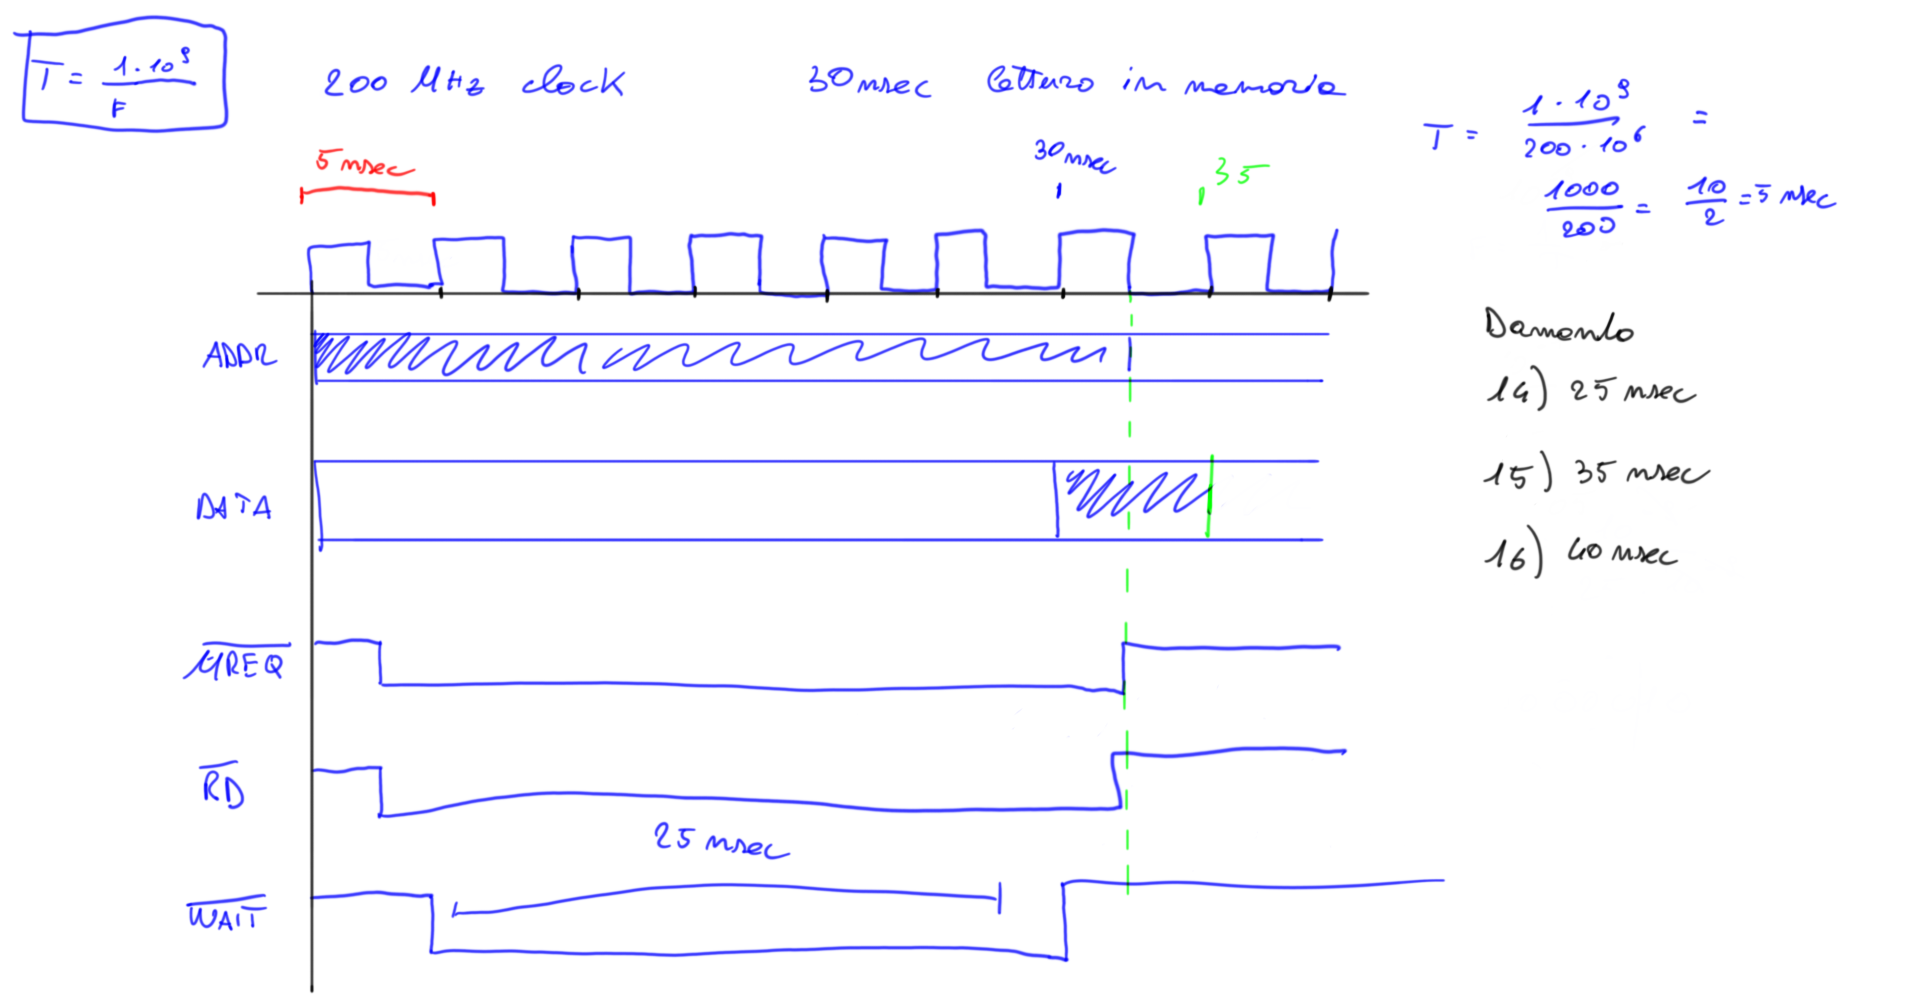 T = 1·10⁹ / F
200 MHz clock
30 nsec lettura in memoria
T = 1·10⁹ / 200·10⁶ =
1000 / 200 = 10 / 2 = 5 nsec
5 nsec
30 nsec
35
ADDR
DATA
MREQ
RD
25 nsec
WAIT
Domando
14) 25 nsec
15) 35 nsec
16) 40 nsec